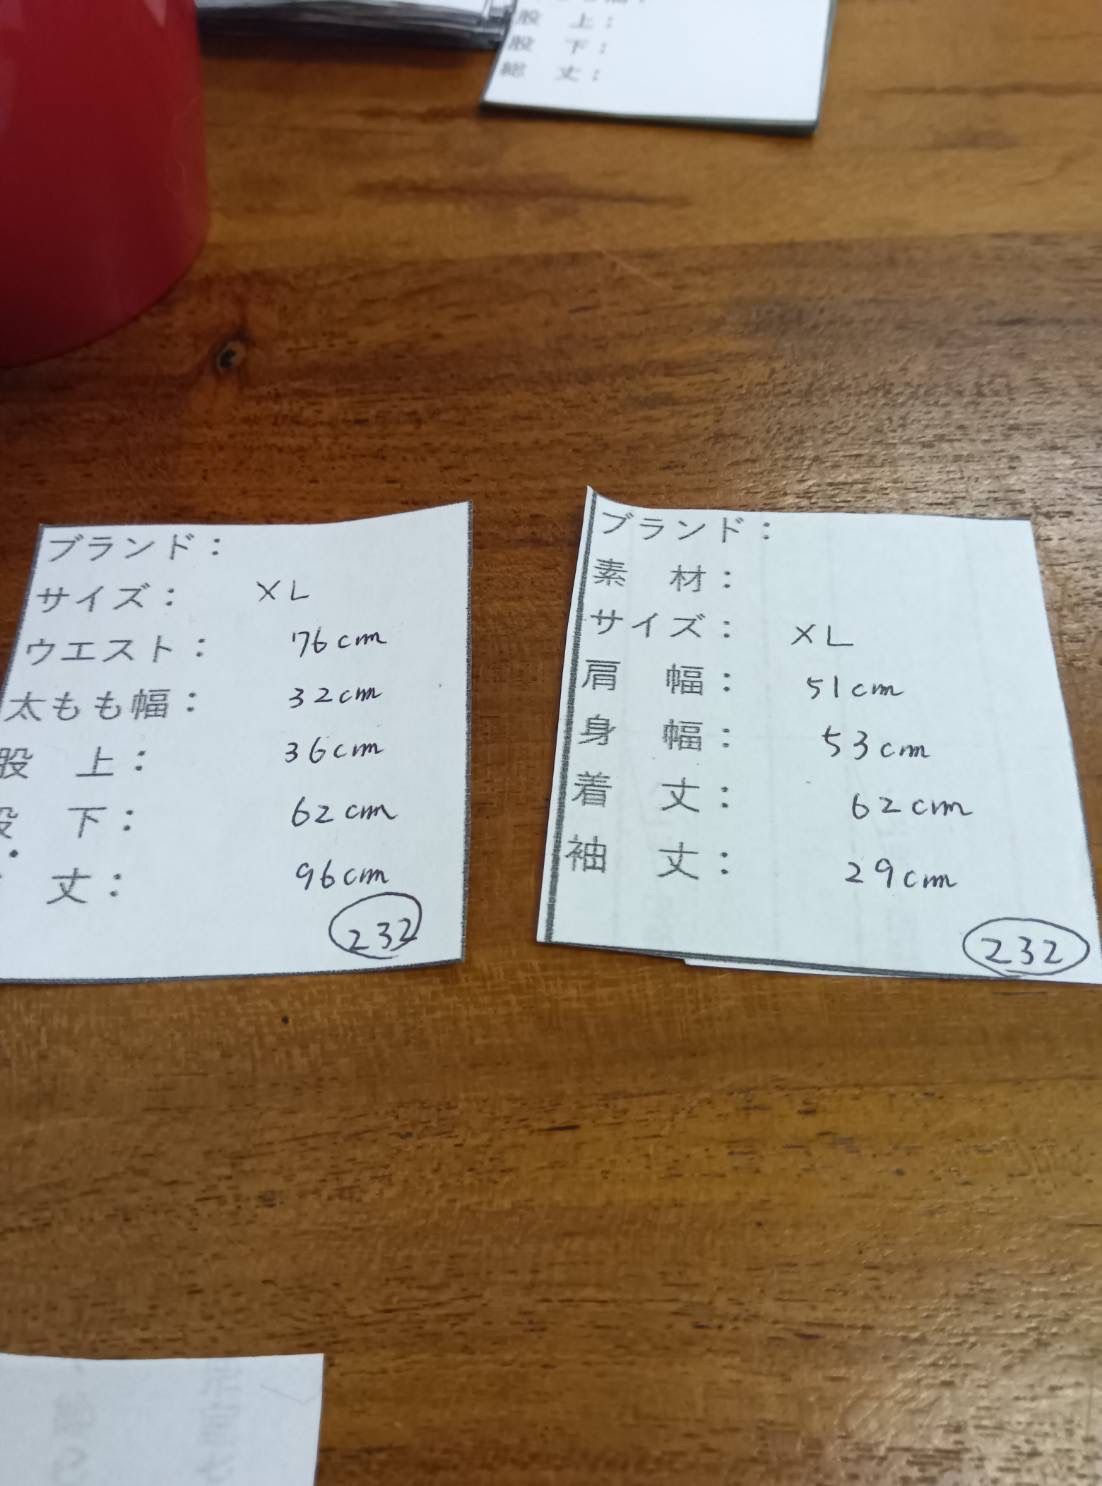 股 上：
股 下：
総 丈：
ブランド：
サイズ： XL
ウエスト： 76cm
太もも幅： 32cm
股 上： 36cm
下： 62cm
丈： 96cm
232
ブランド：
素 材：
サイズ： XL
肩 幅： 51cm
身 幅： 53cm
着 丈： 62cm
袖 丈： 29cm
232